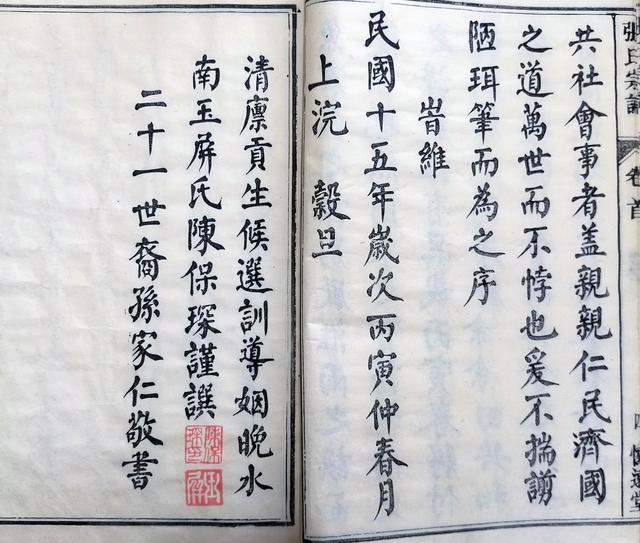 張氏宗譜
卷首
共社會事者盖親親仁民濟國
之道萬世而不悖也爰不揣譾
陋珥筆而為之序
旹維
民國十五年歲次丙寅仲春月
上浣 穀旦
清廪貢生候選訓導姻晚水
南玉屏氏陳保琛謹譔
二十一世裔孫家仁敬書